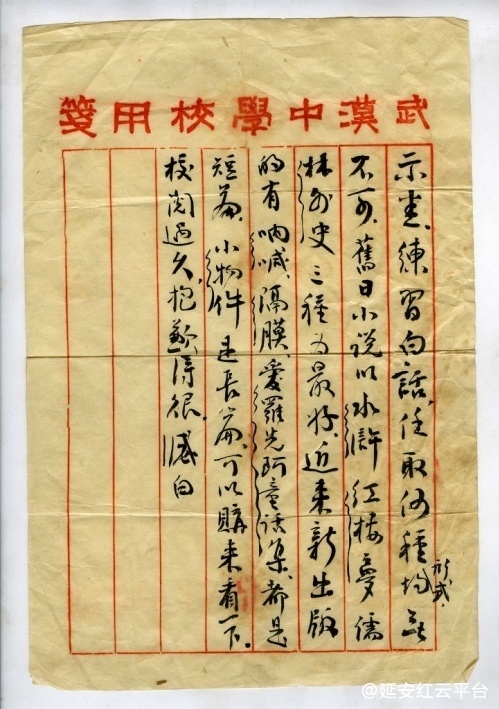 武漢中學校用箋
示悉、練習白話、任取何種形式、均無
不可、舊日小說以水滸紅樓夢儒
林外史三種为最好、近来新出版
的有吶喊、隔膜、愛羅先珂童話集、都是
短篇、小物件是長篇、可以購来看一下。
校閱過久、抱歉得很。白
@延安红云平台